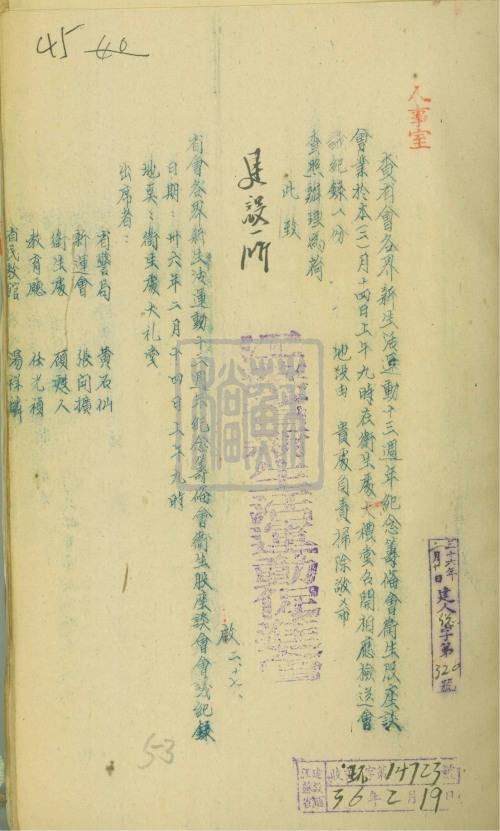 45 40
人事室
查省會各界新生活運動十三週年紀念籌備會衛生股座談
會業於本(二)月十四日上午九時在衛生處大禮堂召開相應檢送會
議紀錄一份
地段由 貴處自責掃除敬希
查照辦理為荷
此致
建設廳
啟 二、十七、
省會各界新生活運動十三週年紀念籌備會衛生股座談會會議紀錄
日期:卅六年二月十四日上午九時
地點:衛生處大礼堂
出席者:
省警局 黃石仙
新運會 張問擴
衛生處
教育廳
省民教舘 湯祥麟
三十六年
二月 日 建人 字第320號
江蘇省建設廳
收 字第14723號
36年2月19日
53